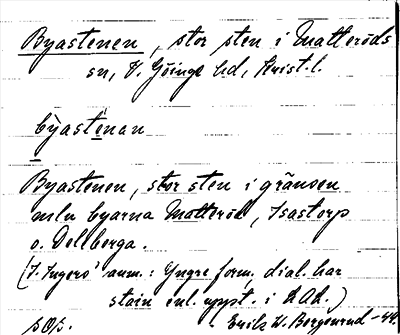 Byastenen, stor sten i Matteröds
sn, V. Göinge hd, Krist. l.
by̍astenan
Byastenen, stor sten i gränsen
mln byarna Matteröd, Isastorp
o. Dellberga.
(I. Ingers' anm.: Yngre form, dial. har
stain enl. uppt. i LAL.)
sOs. Erik W. Borgenrud -44.